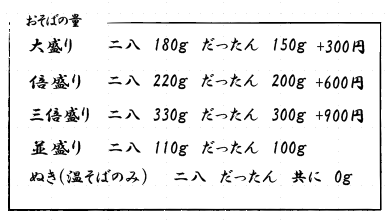 おそばの量
大盛り 二八 180g だったん 150g +300円
倍盛り 二八 220g だったん 200g +600円
三倍盛り 二八 330g だったん 300g +900円
並盛り 二八 110g だったん 100g
ぬき(温そばのみ) 二八 だったん 共に 0g